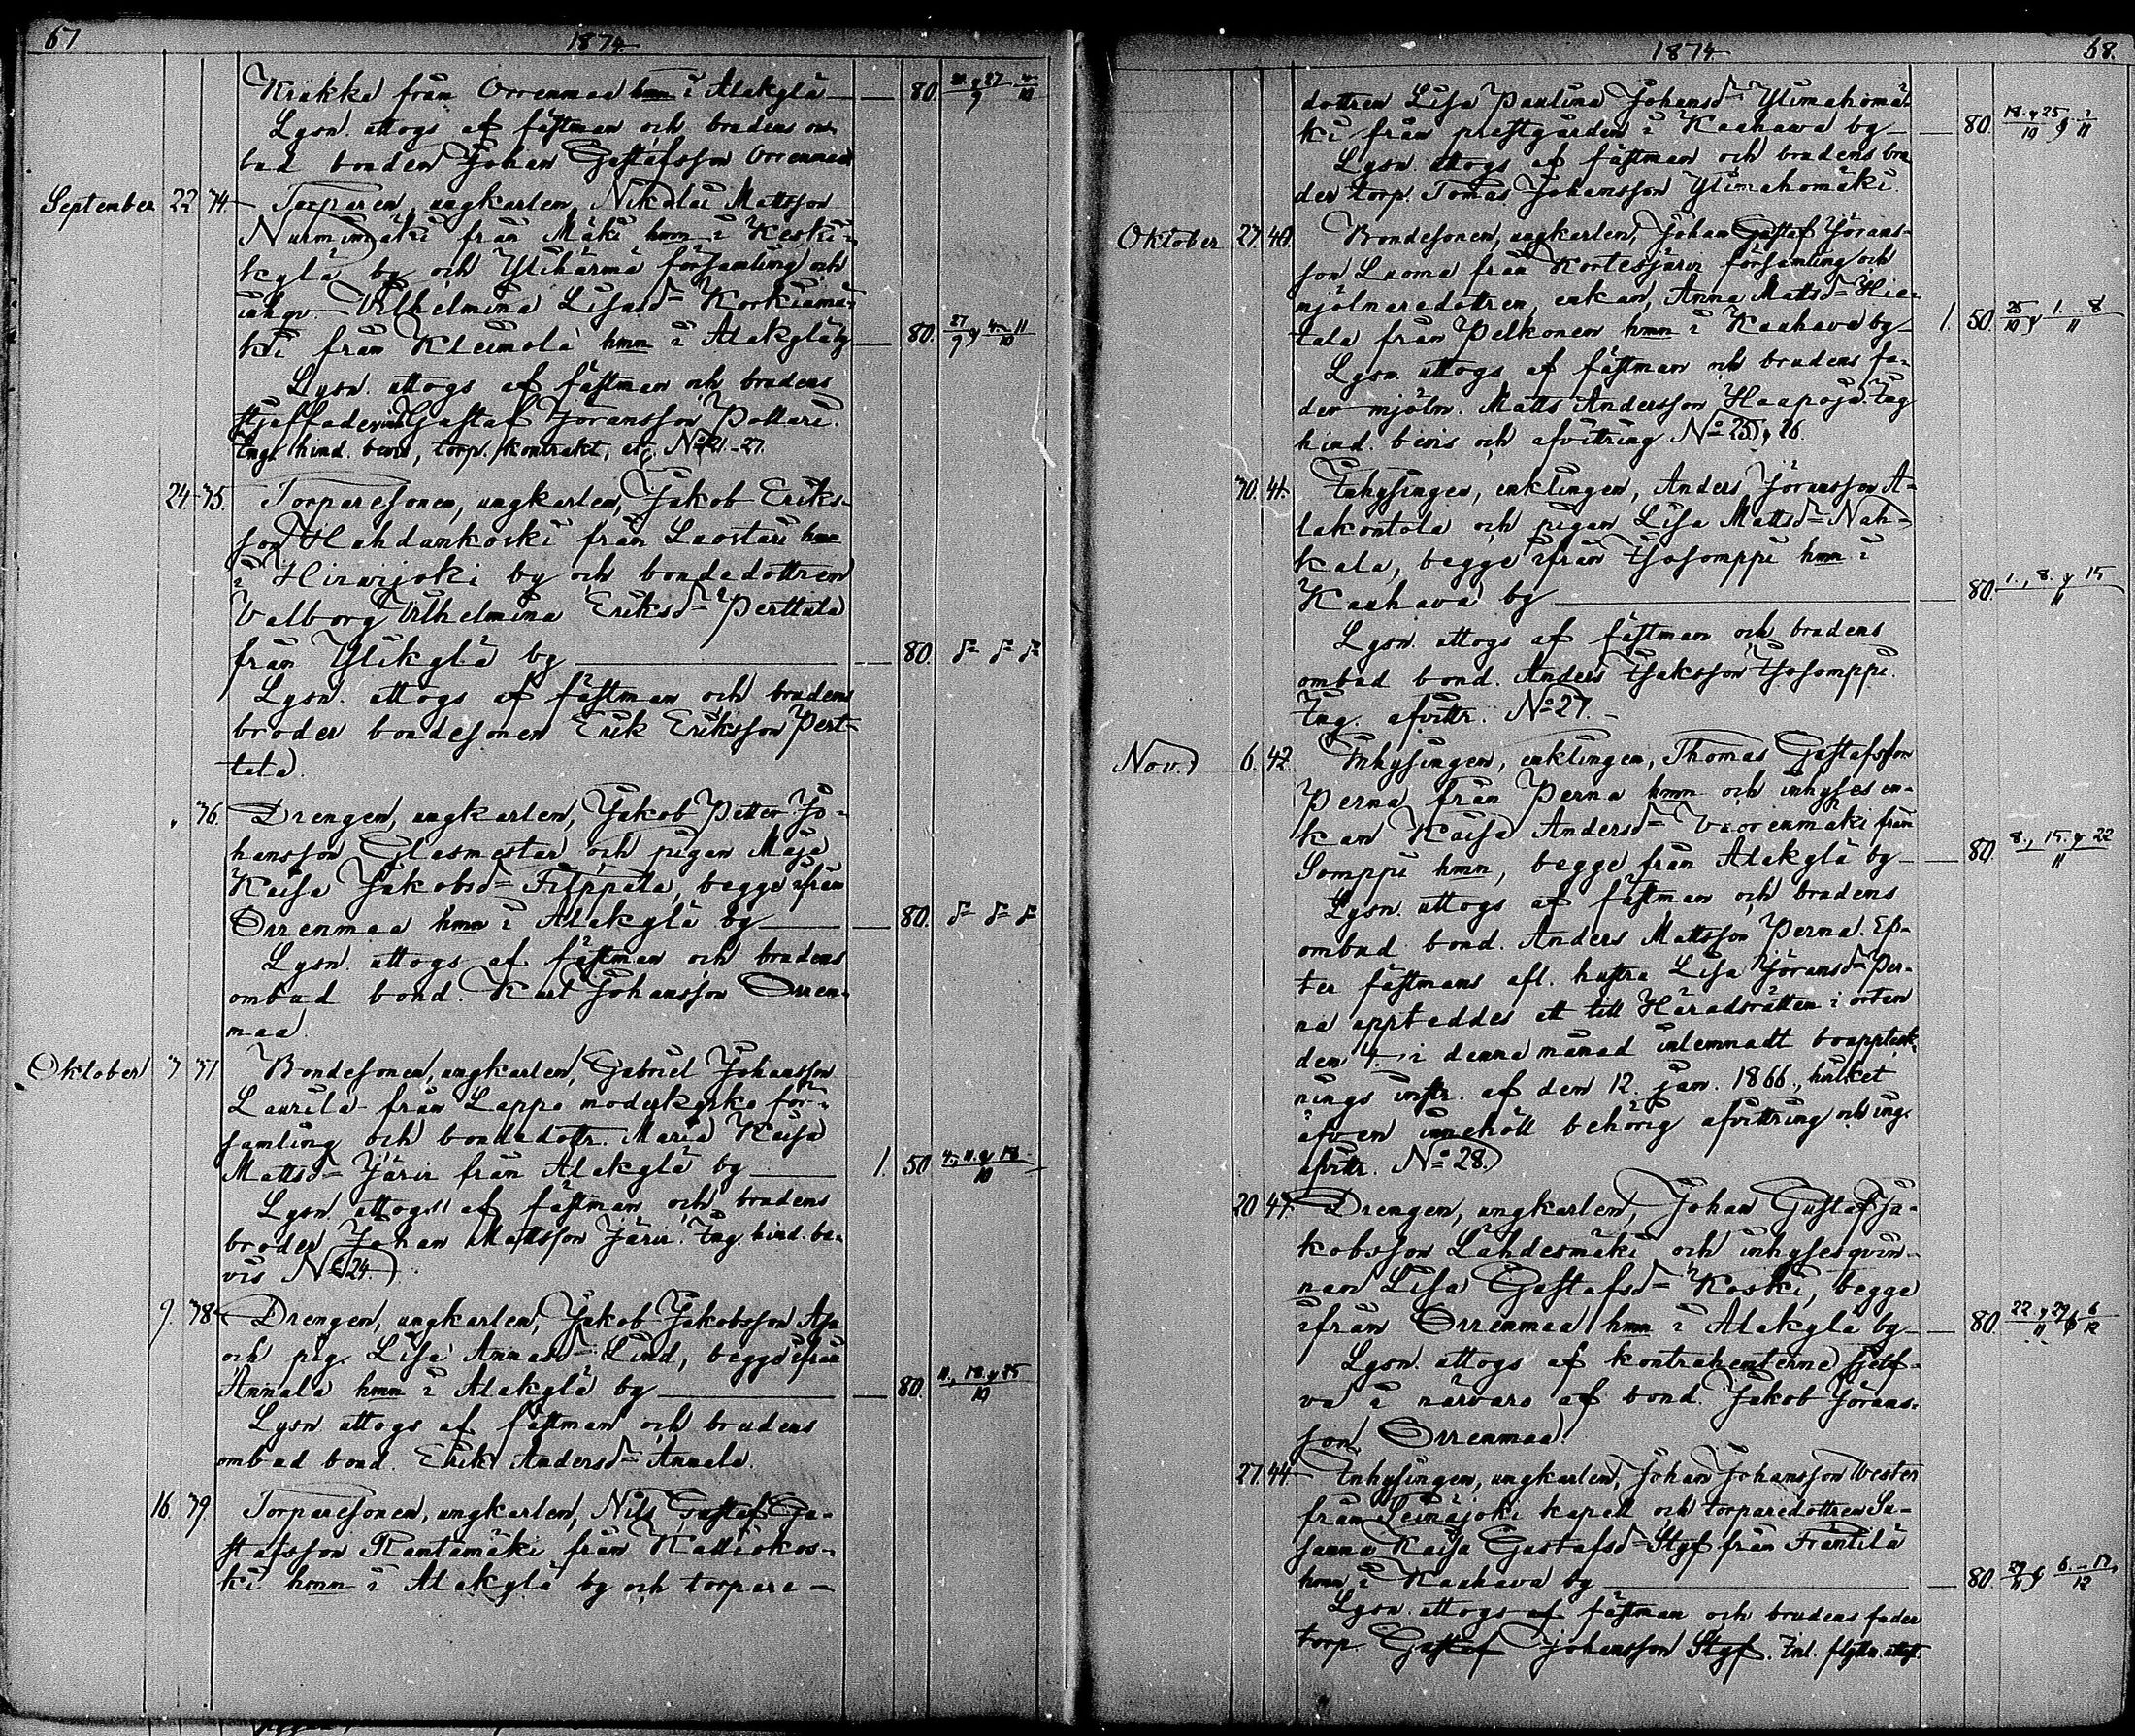 67
1874.
Krakka från Orrenmaa hmn i Alakylä — 80.
Lysn. uttogs af fästman och brudens om-
bud bonden Johan Gustafsson Orrenmaa
September 22 74. Torparen, ungkarlen, Nikolai Mattsson
Nurminmäki från Mäki hmn i Keski-
kylä by och Ylihärmä församling och
inhqv. Vilhelmina Lisasd= Korkiamä-
ki från Kleimola hmn i Alakylä by — 80. 27/9 & 4.-11/10
Lysn. uttogs af fästman och brudens
Gustaf Göransson Pollari.
Ing. hind. bevis, torp. kontrakt, No 21-27.
24. 75. Torparesonen, ungkarlen, Jakob Eriks-
son Hahdankoski från Luostari hmn
i Hirvijoki by och bondedottren
Valborg Vilhelmina Eriksd= Perttala
från Ylikylä by — 80. d= d= d=
Lysn. uttogs af fästman och brudens
broder bondesonen Erik Eriksson Pert-
tala.
76. Drengen, ungkarlen, Jakob Petter Jo-
hansson Glasmestar och pigan Maja
Kaisa Jakobsd= Filppala, begge ifrån
Orrenmaa hmn i Alakylä by — 80. d= d= d=
Lysn. uttogs af fästman och brudens
ombud bond. Karl Johansson Orren-
maa.
Oktober 3 77. Bondesonen, ungkarlen, Gabriel Johansson
Laurila från Lappo moderkyrko för-
samling och bondedottr. Maria Kaisa
Mattsd= Järvi från Alakylä by — 1. 50 4., 11. & 18./10
Lysn. uttogs af fästman och brudens
broder Johan Mattsson Järvi. Ing. hind. be-
vis No 24.
9. 78. Drengen, ungkarlen, Jakob Jakobsson
och pig. Lisa Annasd= Lind, begge ifrån
Annala hmn i Alakylä by — 80. 11., 18. & 25/10
Lysn. uttogs af fästman och brudens
ombud bond. Erik Andersd= Annala.
16. 79. Torparesonen, ungkarlen, Nils Gustaf Gu-
stafsson Rantamäki från Kalliokos-
ki hmn i Alakylä by och torpare-
1874.
68.
dottren Lisa Paulina Johansd= Ylimahomä-
ki från prestgården i Kauhava by — 80. 18. & 25/10
Lysn. uttogs af fästman och brudens bro
der torp. Tomas Johansson Ylimahomäki.
Oktober 27. 40. Bondesonen, ungkarlen, Johan Gustaf Görans-
son Luoma från Kortesjärvi församling och
mjölnaredottren, enkan, Anna Mattsd= Hie-
tala från Pelkonen hmn i Kauhava by — 1. 50. 25/10 & 1.-8/11
Lysn. uttogs af fästman och brudens fa-
der mjöln. Matts Andersson Haapoja. Ing
hind. bevis och afvittring No 25 & 26.
30. 41. Inhysingen, enklingen, Anders Göransson A-
lakontola och pigan Lisa Mattsd= Nah-
kala, begge ifrån Isosomppi hmn i
Kauhava by — 80. 1., 8. & 15/11
Lysn. uttogs af fästman och brudens
ombud bond. Anders Isaksson Isosomppi.
Ing. afvittr. No 27.
Nov. 6. 42. Inhysingen, enklingen, Thomas Gustafsson
Perna från Perna hmn och inhyses en-
kan Kaisa Andersd= Vuorenmäki från
Somppi hmn, begge från Alakylä by — 80. 8., 15. & 22/11
Lysn. uttogs af fästman och brudens
ombud bond. Anders Mattsson Perna. Ef-
ter fästmans afl. hustru Lisa Göransd= Per-
na uppteddes ett till Häradsrätten i orten
den 4. i denna månad inlemnadt bouppteck-
nings instr. af den 12. jan. 1866., hvilket
äfven innehöll behörig afvittring och ing.
afvittr. No 28.
20. 43. Drengen, ungkarlen, Johan Gustaf Ja-
kobsson Lahdesmäki och inhysesqvin-
nan Lisa Gustafsd= Koski, begge
ifrån Orrenmaa hmn i Alakylä by — 80. 22. & 29/11 & 6/12
Lysn. uttogs af kontrahenterne sjelf-
va i närvaro af bond. Jakob Görans-
son Orrenmaa.
27. 44. Inhysingen, ungkarlen, Johan Johansson Wester
från Seinäjoki kapell och torparedottren Su-
sanna Kaisa Gustafsd= Styf från Frantilä
hmn i Kauhava by — 80. 29/11 & 6.-13/12
Lysn. uttogs af fästman och brudens fader
torp. Gustaf Johansson Styf. Inl. flyttn. attest